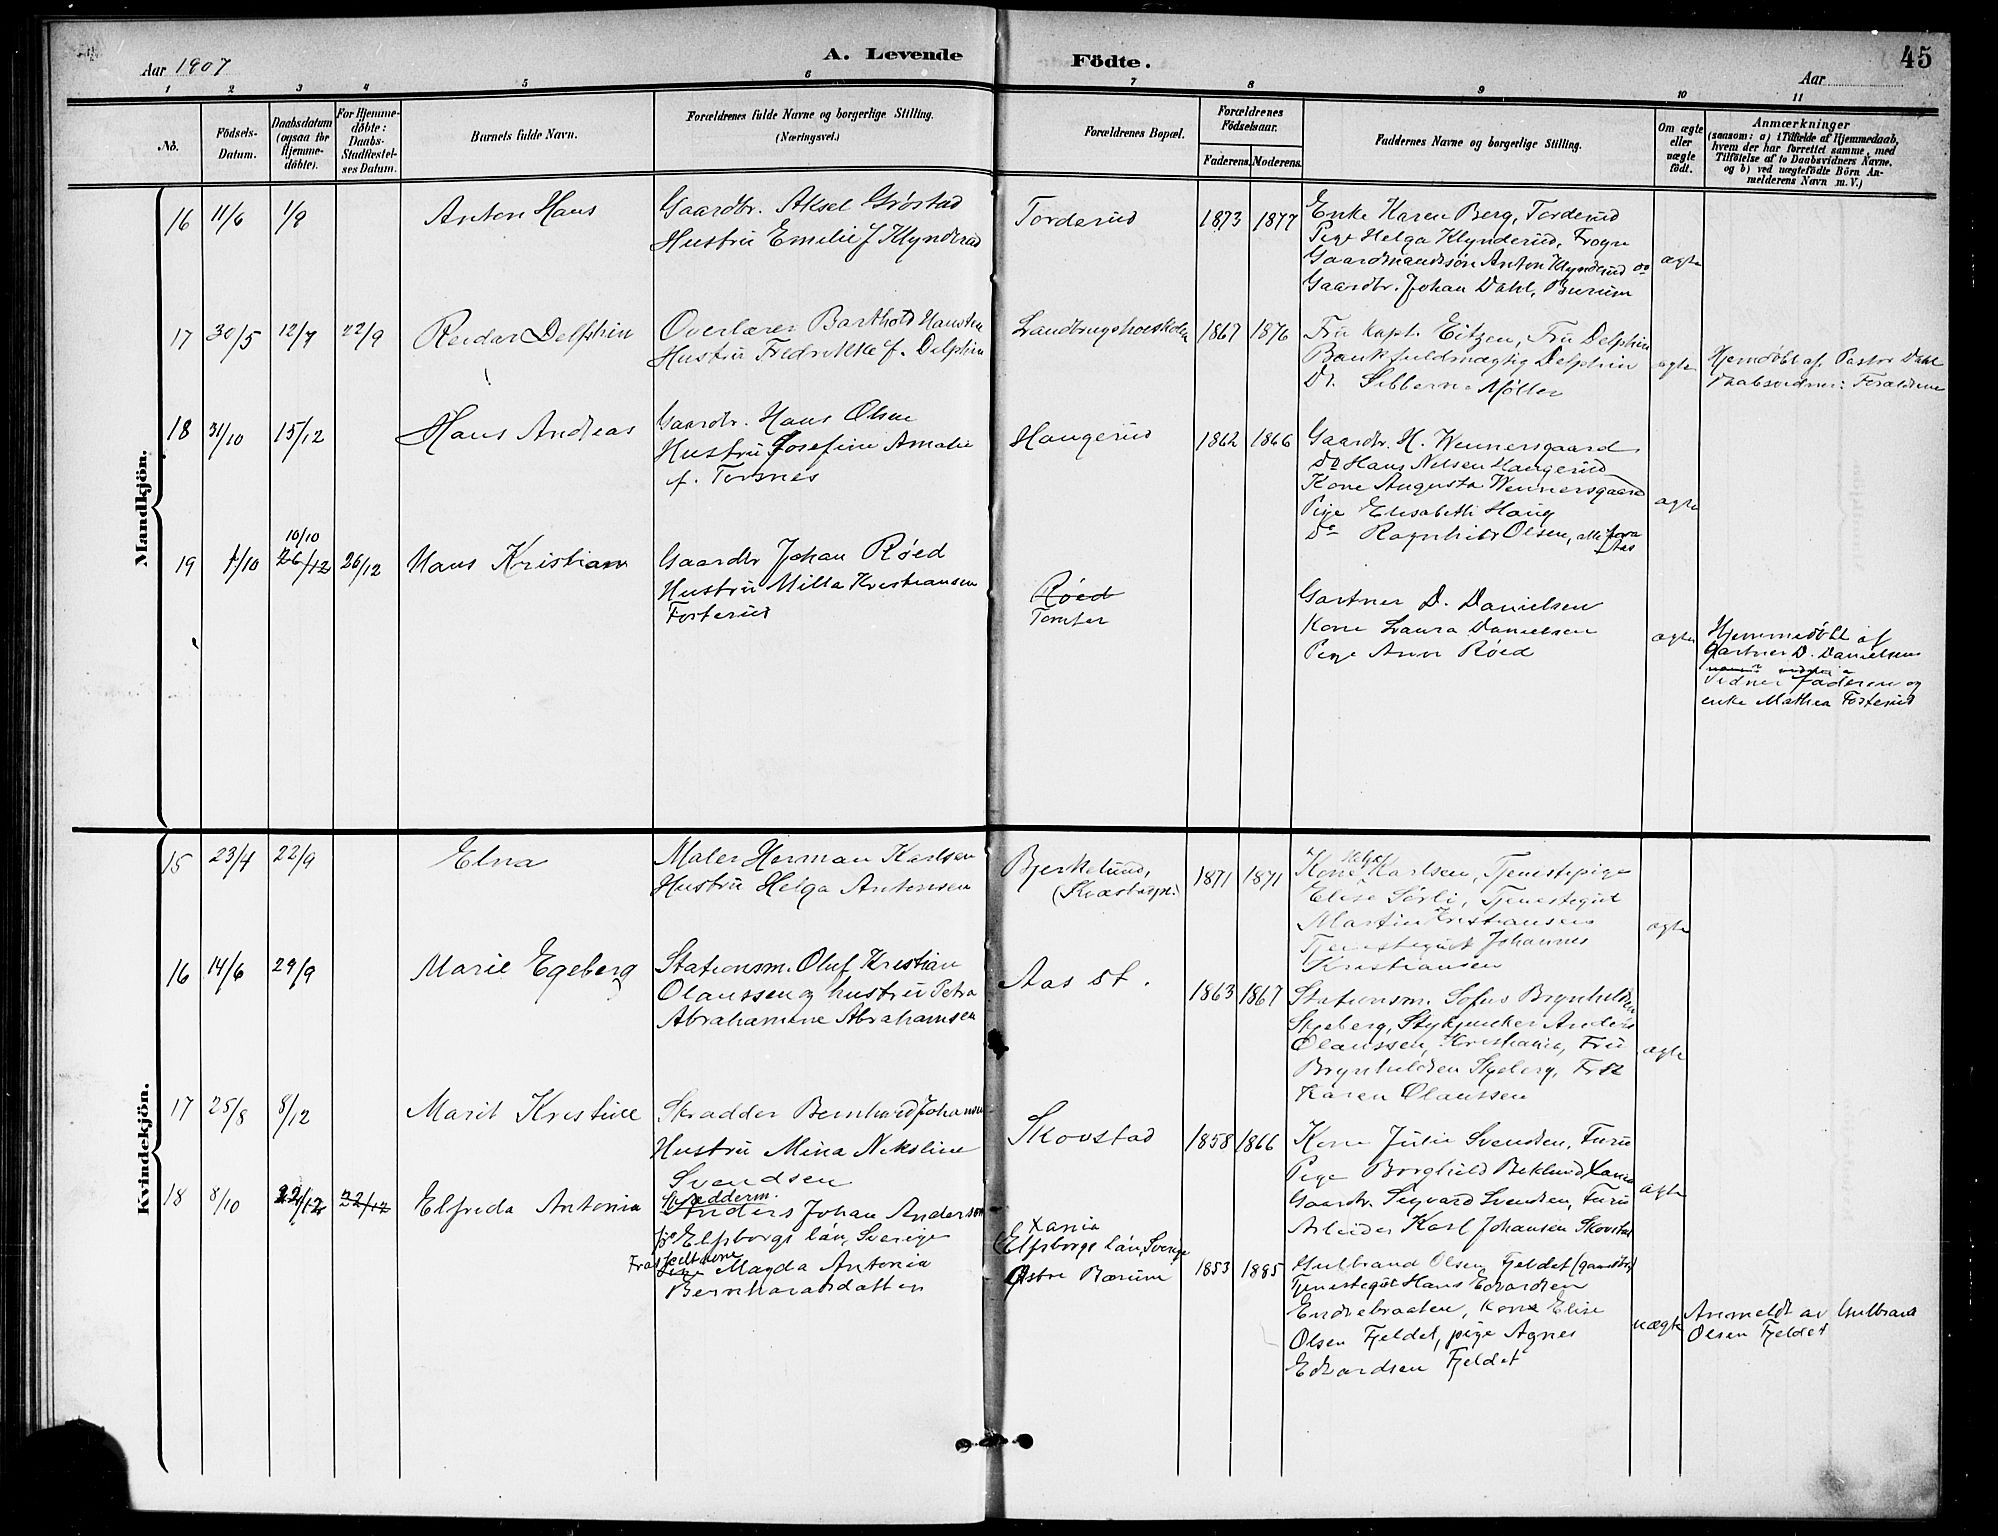 Aar 1907
A. Levende Födte.
Aar
45
1 2 3 4 5 6 7 8 9 10 11
No.
Födsels-Datum.
Daabsdatum (ogsaa for Hjemme-döbte).
For Hjemme-döbte: Daabs-Stadfæstel-ses Datum.
Barnets fulde Navn.
Forældrenes fulde Navne og borgerlige Stilling.
(Næringsvei.)
Forældrenes Bopæl.
Forældrenes Födselsaar.
Faderens. Moderens.
Faddernes Navne og borgerlige Stilling.
Om ægte eller uægte födt.
Anmærkninger
(saasom: a) i Tilfælde af Hjemmedaab,
hvem der har forrettet samme, med
Tilföielse af to Daabsvidners Navne,
og b) ved uægtefödte Börn An-
melderens Navn m. V.)
Mandkjön.
16 11/6 1/9 Anton Hans
Gaardbr. Aksel Grøstad
Hustru Emilie f Klynderud
Torderud 1873 1877
Enke Karen Berg, Torderud
Pige Helga Klynderud, Frogn
Gaardmandssøn Anton Klynderud do
Gaardbr. Johan Dahl, Burum
ægte
17 30/5 12/7 22/9 Reidar Delphin
Overlærer Barthold Hansten
Hustru Fredrikke f. Delphin
Landbrugshøiskolen 1867 1876
Fru Kapt. Eitzen, Fru Delphin
Bankfuldmægtig Delphin
Dr. Sibbern Møller
ægte
Hjemdøbt af Pastor Dahl
Daabsvidner: Forældrene
18 31/10 15/12 Hans Andreas
Gaardbr. Hans Olsen
Hustru Josefine Amalie
f. Torsnes
Haugerud 1862 1866
Gaardbr. H. Wennersgaard
Do Hans Nilsen Haugerud
Kone Augusta Wennersgaard
Pige Elisabeth Haug
Do Ragnhild Olsen, alle fra Aas
ægte
19 1/10 10/10 26/12 26/12 Hans Kristian
Gaardbr Johan Røed
Hustru Milla Kristiansen
Fosterud
Røed
Tomter
Gartner D. Danielsen
Kone Laura Danielsen
Pige Anna Røed
ægte
Hjemmedøbt af
Gartner D. Danielsen
Vidner faderen og
enke Mathea Fosterud
Kvindekjön.
15 23/4 22/9 Elna
Maler Herman Karlsen
Hustru Helga Antonsen
Bjerkelund, 1871 1871
Kone Helga Karlsen, Tjenestepige
Elise Sørli, Tjenestegut
Martin Kristiansen
Tjenestegut Johannes
Kristiansen
ægte
16 14/6 29/9 Marie Egeberg
Stationsm. Oluf Kristian
Olaussen og hustru Petra
Abrahamine Abrahamsen
Aas st. 1863 1867
Stationsm. Sofus Brynhildsen
Skjeberg, Stykjunker Anders
Olaussen, Kristiania, Fru
Brynhildsen Skjeberg, Frk
Karen Olaussen
ægte
17 25/8 8/12 Marit Kristine
Skrædder Bernhard Johansen
Hustru Mina Nikoline
Svendsen
Skovstad 1858 1866
Kone Julie Svendsen, Furu
Pige Borghild Beklund Xania
Gaardbr. Sigvard Svendsen, Furu
Arbeider Karl Johansen Skovstad
ægte
18 8/10 22/12 22/12 Elfrida Antonia
Skrædderm.
Anders Johan Anderson
fra Elfsborgs län, Sverige
Fraskilt kone
Pige Magda Antonia
Bernhardsdatter
Xania
Elfsborgs län, Sverige
Østre Bærum 1853 1885
Gulbrand Olsen Fjeldet (gaardbr)
Tjenestegut Hans Edvardsen
Endrebraaten, Kone Elise
Olsen Fjeldet, pige Agnes
Edvardsen Fjeldet
uægte
Anmeldt av Gulbrand
Olsen Fjeldet